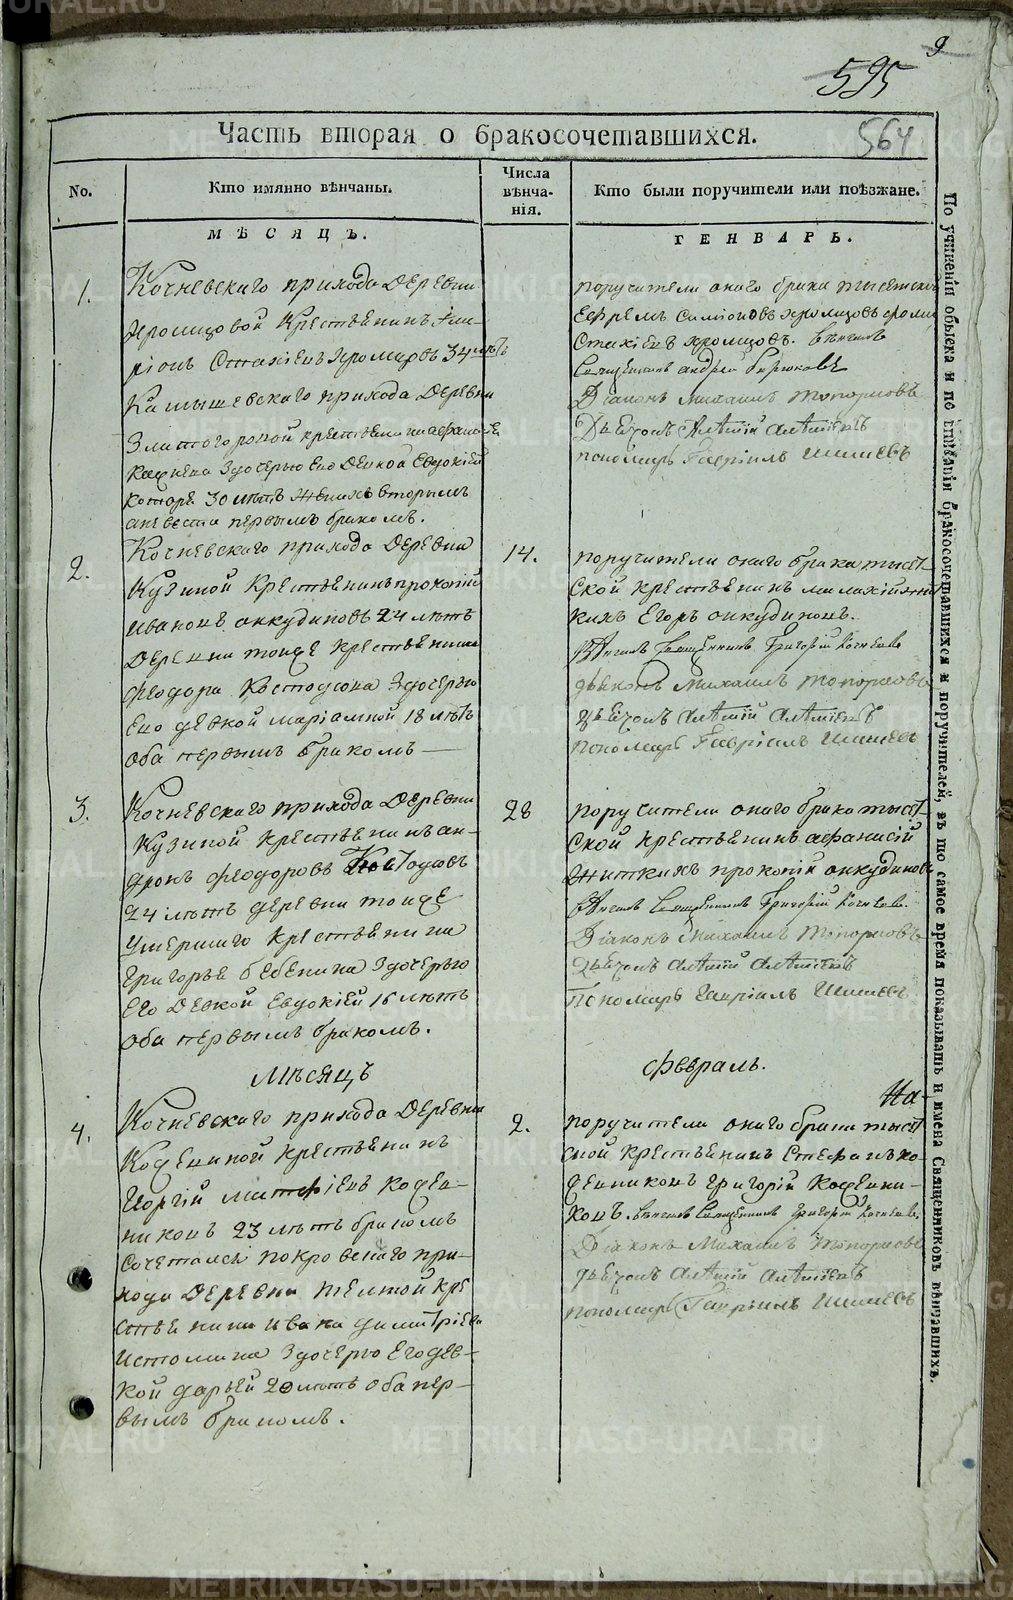 9
595
564
Часть вторая о бракосочетавшихся.
No.
Кто имянно вѣнчаны.
Числа вѣнча-нія.
Кто были поручители или поѣзжане.
МѢСЯЦЪ.
ГЕНВАРЬ.
1.
Кочневскаго прихода деревни
Хромцовой крестьянинъ
Стахіевъ Хромцовъ 34 лѣтъ
Камышевскаго прихода деревни
Златогоровой
дочерью его девкой Евдокіей
30 лѣтъ женихъ вторымъ
а невеста первымъ бракомъ.
поручители онаго брака
Ефремъ Симіоновъ Хромцовъ
Стахіевъ Хромцовъ. вѣнчалъ
Священникъ Андрей Бирюковъ
Діаконъ Михаилъ Топорковъ
пономарь Гавріилъ Шишевъ
2.
Кочневскаго прихода деревни
Кузиной крестьянинъ прокопій
Ивановъ Аккудиновъ 24 лѣтъ
деревни тоже крестьянина
Феодора Костоусова здочерью
Ево девкой Маріамной 18 лѣтъ
оба первымъ бракомъ
14.
поручители онаго брака тысят-
ской крестьянинъ
Егоръ Аккудиновъ.
вѣнчалъ Священникъ Григорій Кочневъ
дьяконъ Михаилъ Топорковъ
пономарь Гавріилъ Шишевъ
3.
Кочневскаго прихода деревни
Кузиной крестьянинъ ан-
дронъ Феодоровъ Костоусовъ
24 лѣтъ деревни тоже
умершаго крестьянина
Григорья Бебенина здочерью
Его девкой Евдокіей 16 лѣтъ
оба первымъ бракомъ.
28
поручители онаго брака тысят-
ской крестьянинъ афанасій
Житкихъ прокопій аккудиновъ
вѣнчалъ Священникъ Григорій Кочневъ.
Діаконъ Михаилъ Топорковъ
Пономарь Гавріилъ Шишевъ
мѣсяцъ
Февраль.
На-
4.
Кочневскаго прихода деревни
крестьянинъ
Георгій
23 лѣтъ бракомъ
сочетался покровскаго при-
хода деревни Желтой кре-
стьянина ивана димитріева
Истомина здочерью Его дев-
кой дарьей 20 лѣтъ оба пер-
вымъ бракомъ.
2.
поручители онаго брака тысят-
ской крестьянинъ Стефанъ
Григорій
вѣнчалъ Священникъ Григорій Кочневъ.
Діаконъ Михаилъ Топорковъ
пономарь Гавріилъ Шишевъ
По учиненіи обыска и по вписаніи бракосочетавшихся и поручителей, въ то самое время показывать и имена Священниковъ вѣнчавшихъ.
METRIKI.GASO-URAL.RU